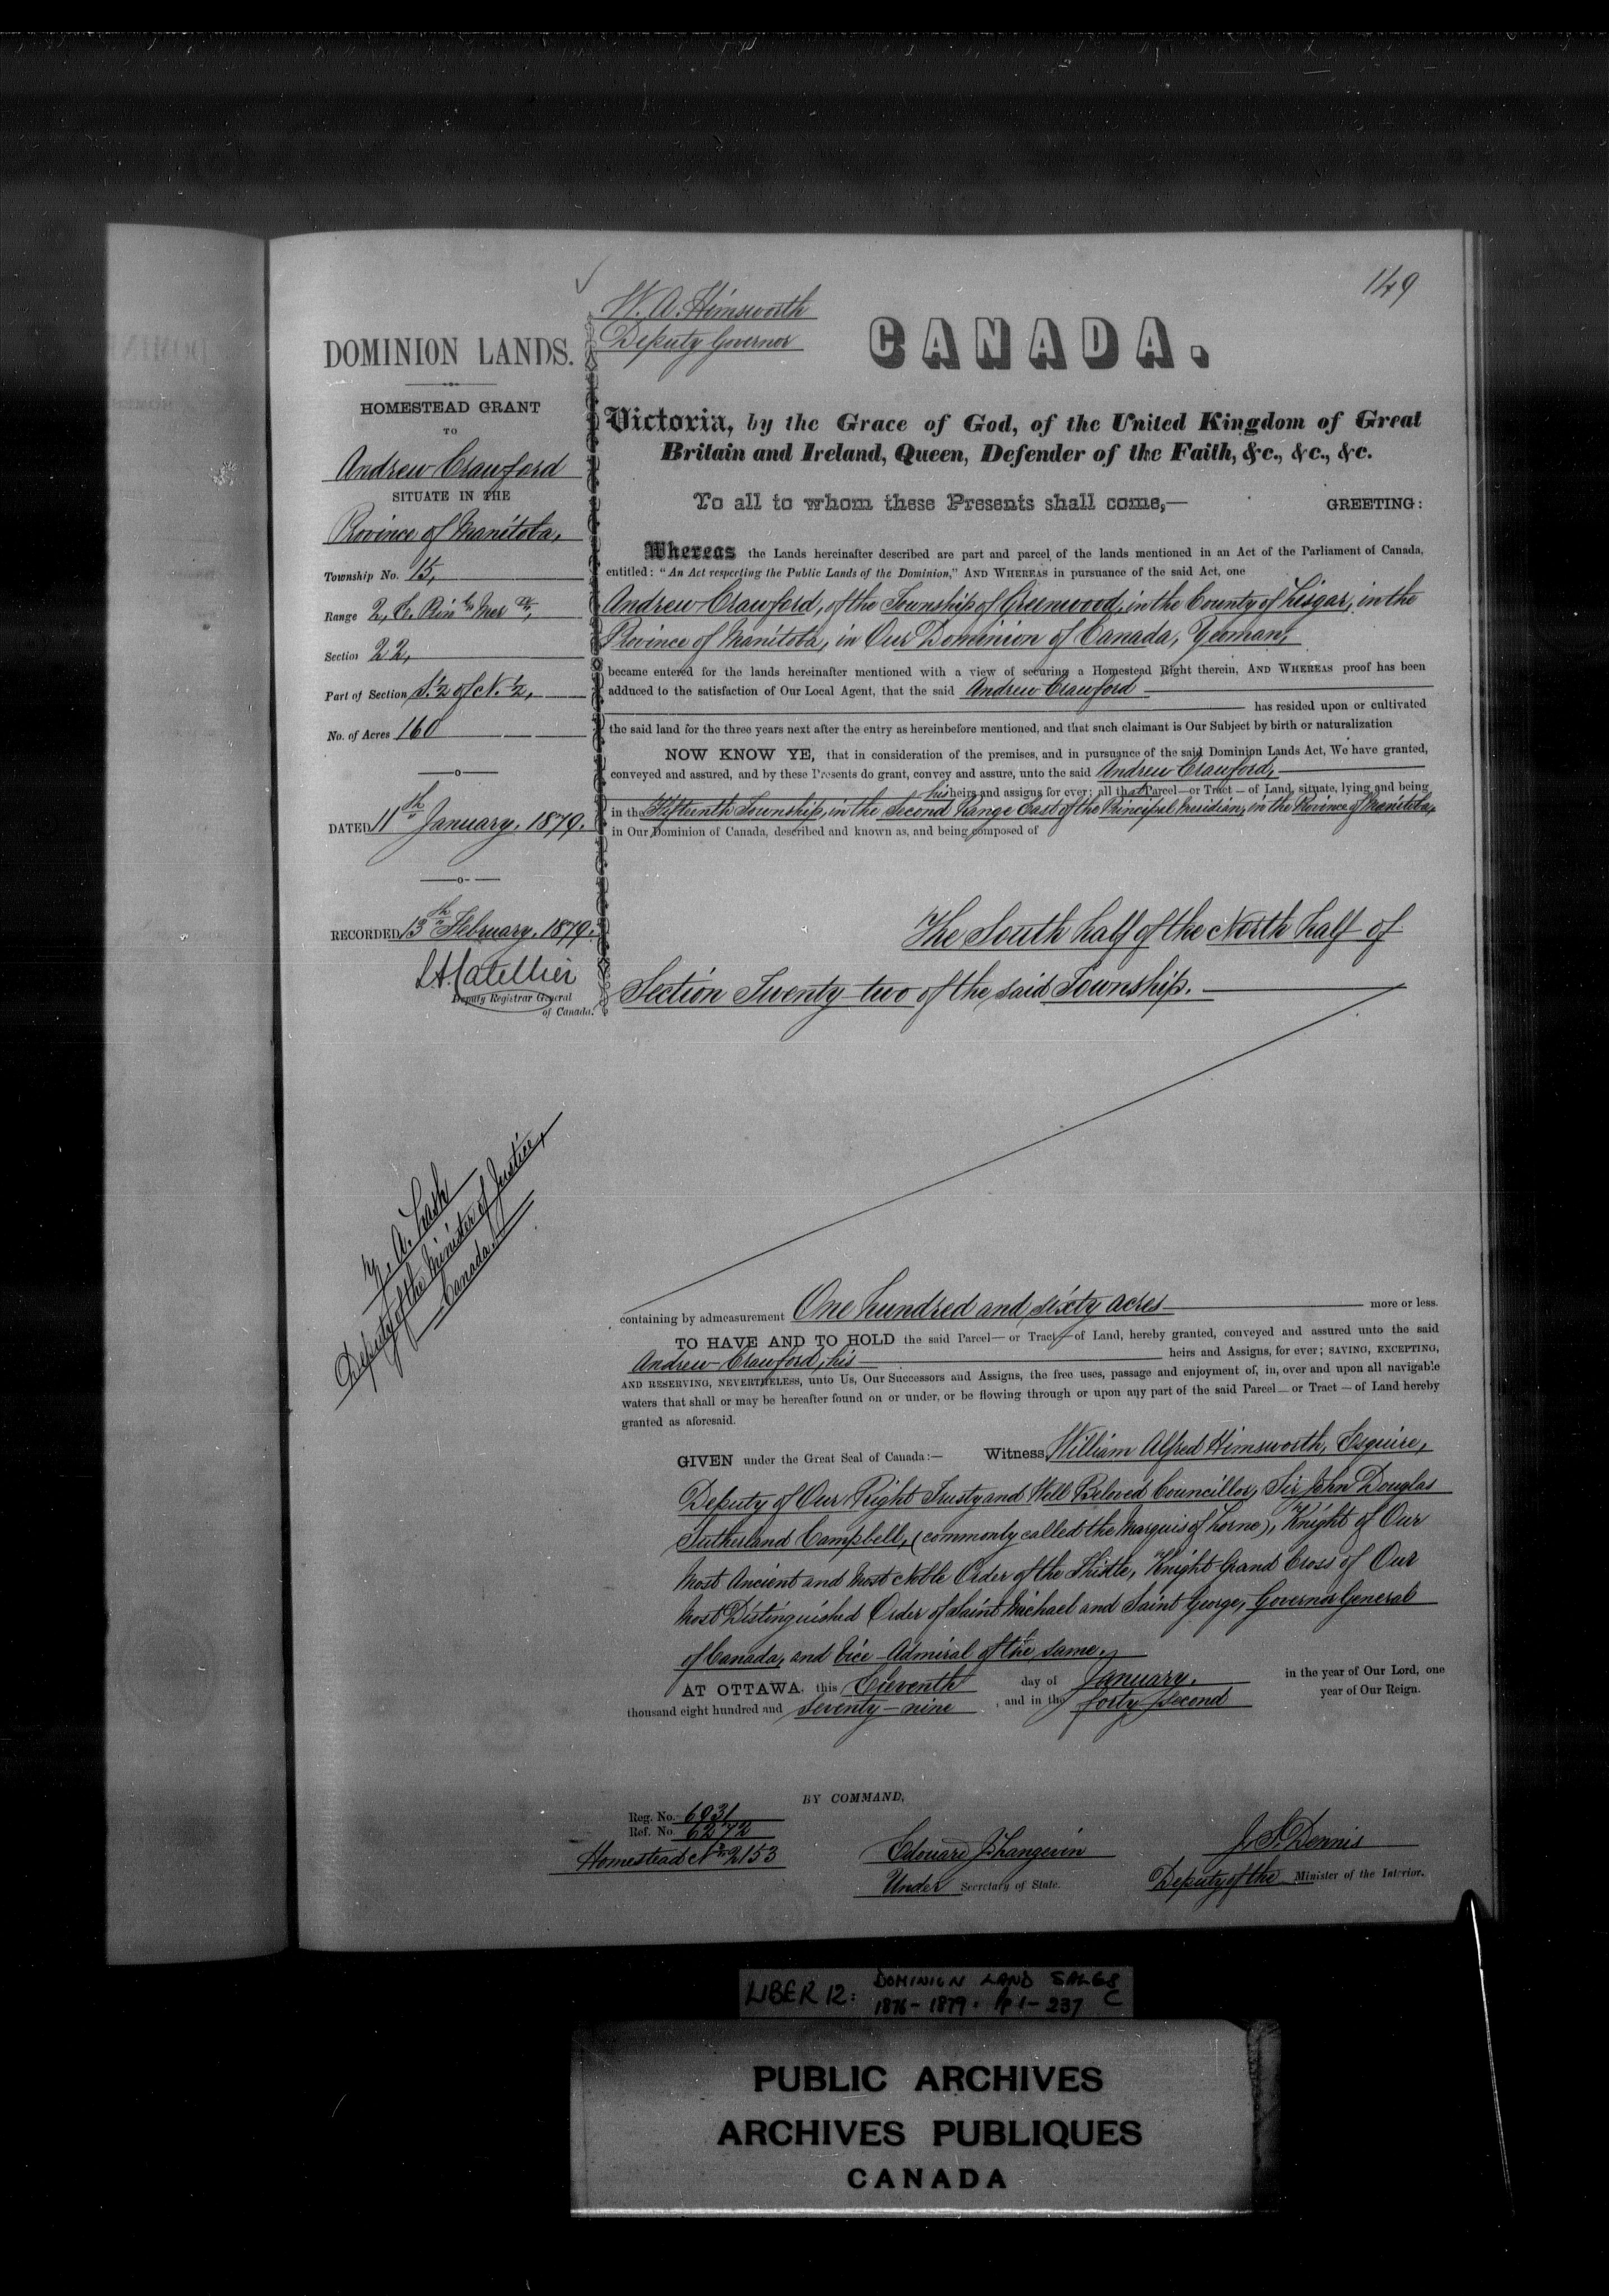 149
W. A. Himsworth
Deputy Governor
CANADA.
DOMINION LANDS.
HOMESTEAD GRANT
TO
Andrew Crawford
SITUATE IN THE
Province of Manitoba,
Township No. 15,
Range 2, E. Prin^l Mer^dn,
Section 22,
Part of Section S. ½ of N. ½,
No. of Acres 160
DATED 11th January, 1879.
RECORDED 13th February, 1879.
L. A. Catellier
Deputy Registrar General
of Canada.
Z. A. Lash
Deputy of the Minister of Justice,
Canada.
Victoria, by the Grace of God, of the United Kingdom of Great
Britain and Ireland, Queen, Defender of the Faith, &c., &c., &c.
To all to whom these Presents shall come,— GREETING:
Whereas the Lands hereinafter described are part and parcel of the lands mentioned in an Act of the Parliament of Canada,
entitled: "An Act respecting the Public Lands of the Dominion," AND WHEREAS in pursuance of the said Act, one
Andrew Crawford, of the Township of Greenwood, in the County of Lisgar, in the
Province of Manitoba, in Our Dominion of Canada, Yeoman,
became entered for the lands hereinafter mentioned with a view of securing a Homestead Right therein, AND WHEREAS proof has been
adduced to the satisfaction of Our Local Agent, that the said Andrew Crawford
has resided upon or cultivated
the said land for the three years next after the entry as hereinbefore mentioned, and that such claimant is Our Subject by birth or naturalization
NOW KNOW YE, that in consideration of the premises, and in pursuance of the said Dominion Lands Act, We have granted,
conveyed and assured, and by these Presents do grant, convey and assure, unto the said Andrew Crawford,
his heirs and assigns for ever; all that Parcel—or Tract—of Land, situate, lying and being
in the Fifteenth Township, in the Second Range East of the Principal Meridian, in the Province of Manitoba,
in Our Dominion of Canada, described and known as, and being composed of
The South half of the North half of
Section Twenty-two of the said Township.
containing by admeasurement One hundred and sixty acres more or less.
TO HAVE AND TO HOLD the said Parcel—or Tract—of Land, hereby granted, conveyed and assured unto the said
Andrew Crawford, his heirs and Assigns, for ever; SAVING, EXCEPTING,
AND RESERVING, NEVERTHELESS, unto Us, Our Successors and Assigns, the free uses, passage and enjoyment of, in, over and upon all navigable
waters that shall or may be hereafter found on or under, or be flowing through or upon any part of the said Parcel—or Tract—of Land hereby
granted as aforesaid.
GIVEN under the Great Seal of Canada:— Witness, William Alfred Himsworth, Esquire,
Deputy of Our Right Trusty and Well Beloved Councillor, Sir John Douglas
Sutherland Campbell, (commonly called the Marquis of Lorne), Knight of Our
Most Ancient and Most Noble Order of the Thistle, Knight Grand Cross of Our
Most Distinguished Order of Saint Michael and Saint George, Governor General
of Canada, and Vice-Admiral of the same.
AT OTTAWA, this Eleventh day of January, in the year of Our Lord, one
thousand eight hundred and seventy-nine, and in the forty second year of Our Reign.
BY COMMAND,
Reg. No. 6931
Ref. No. 6272
Homestead No. 2153
Edouard J. Langevin
Under Secretary of State.
J. S. Dennis
Deputy of the Minister of the Interior.
LIBER 12: DOMINION LAND SALES
1876-1879. pp 1-237 C
PUBLIC ARCHIVES
ARCHIVES PUBLIQUES
CANADA